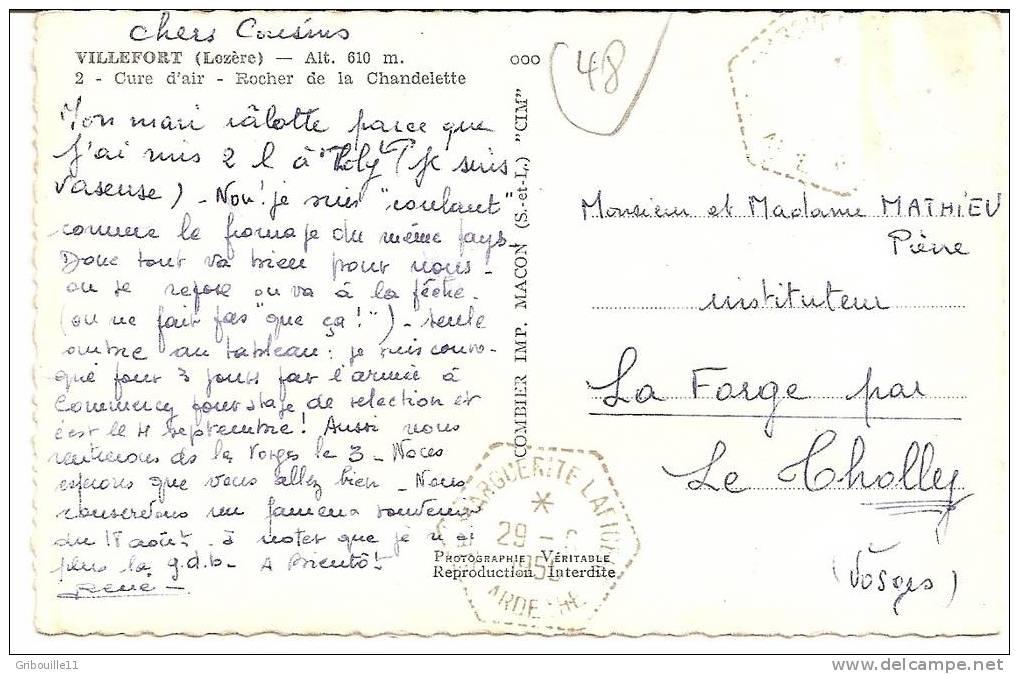 chers Cousins
VILLEFORT (Lozère) — Alt. 610 m.
2 - Cure d'air - Rocher de la Chandelette
Mon mari râlotte parce que
j'ai mis 2 l à "Tholy" (je suis
vaseuse) - Non! je suis "coulant"
comme le fromage du même pays
Donc tout va bien pour nous -
on se repose on va à la pêche -
(on ne fait pas "que ça!") - seule
ombre au tableau : je suis convo-
qué pour 3 jours par l'armée à
Commercy pour stage de selection et
c'est le 4 septembre! Aussi nous
rentrerons ds les Vosges le 3 - Nous
espérons que vous allez bien - Nous
conservons un fameux souvenir
du 18 août - à noter que je n'ai
plus la g.d.b - A Bientôt
René -
ooo
48
COMBIER IMP. MACON (S.-et-L.) "CIM"
PHOTOGRAPHIE VÉRITABLE
Reproduction Interdite
MARGUERITE LAFIGERE
29 -
ARDECHE
Monsieur et Madame MATHIEU
Pierre
instituteur
La Forge par
Le Tholly
(Vosges)
Gribouille11
www.delcampe.net